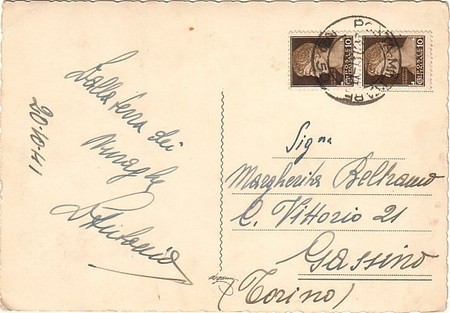 Dalla terra dei
nuraghi
20.10.41
POSTA MILITARE
CENT. 10
CENT. 10
Sig.na
Margherita Beltramo
C. Vittorio 21
Gassino
(Torino)